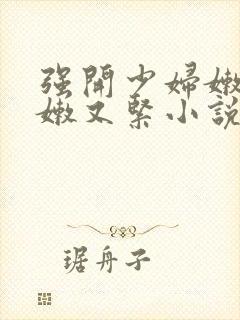 强開少婦嫩
嫩又緊小說
琚舟子